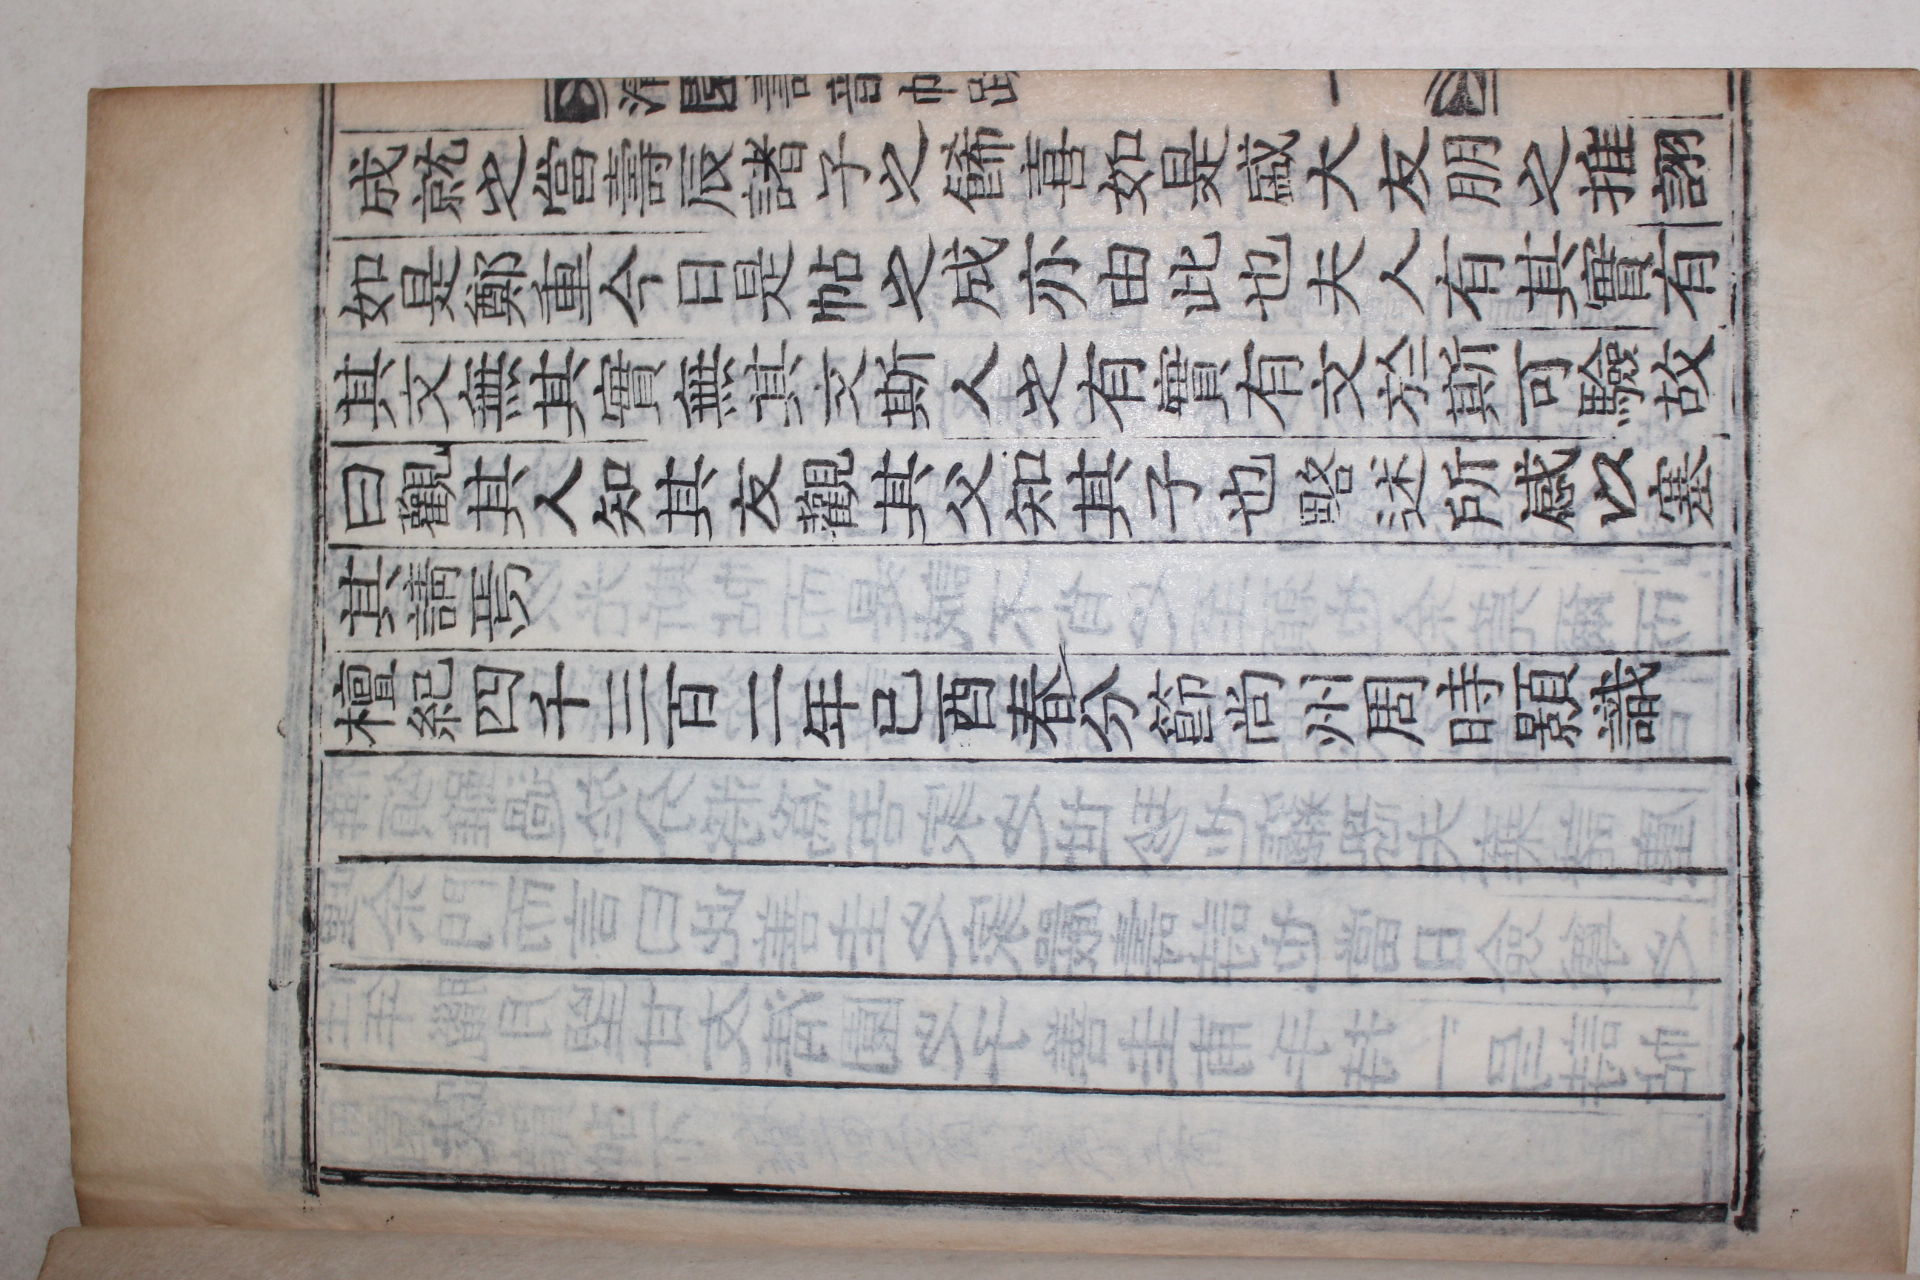 清園壽韻帖跋
一
成就之當壽辰諸子之餙喜如是盛大友朋之推詡
如是鄭重今日是帖之成亦由此也夫人有其實有
其文無其實無其文斯人之有實有文於斯可驗故
曰觀其人知其友觀其父知其子也略述所感以塞
其請焉
檀紀四千三百二年己酉春分節尚州周時顯識